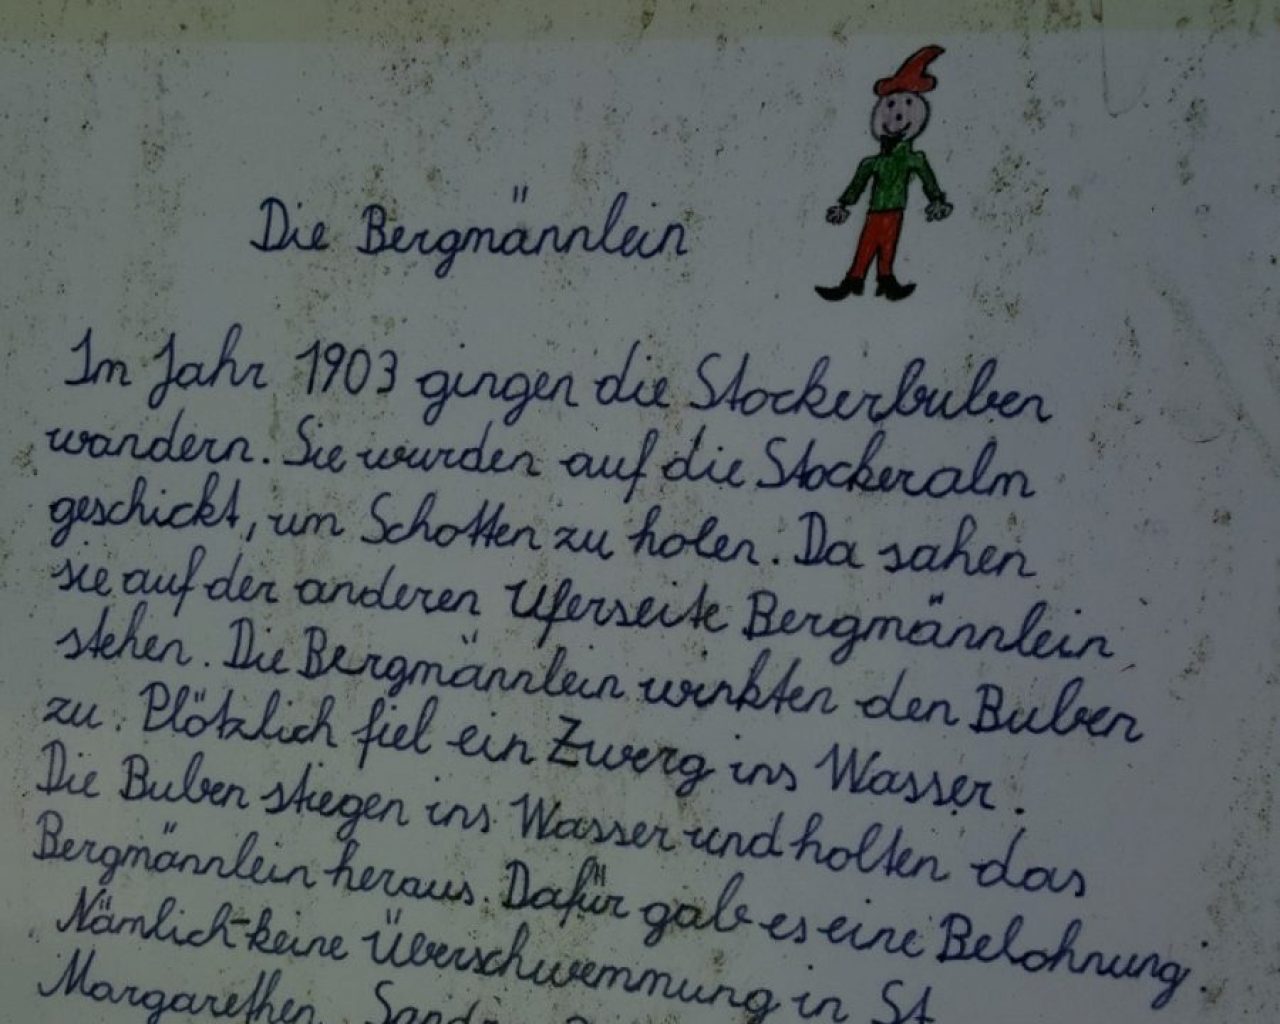 Die Bergmännlein
Im Jahr 1903 gingen die Stockerbuben
wandern. Sie wurden auf die Stockeralm
geschickt, um Schotten zu holen. Da sahen
sie auf der anderen Uferseite Bergmännlein
stehen. Die Bergmännlein winkten den Buben
zu. Plötzlich fiel ein Zwerg ins Wasser.
Die Buben stiegen ins Wasser und holten das
Bergmännlein heraus. Dafür gab es eine Belohnung.
Nämlich keine Überschwemmung in St.
Margarethen.